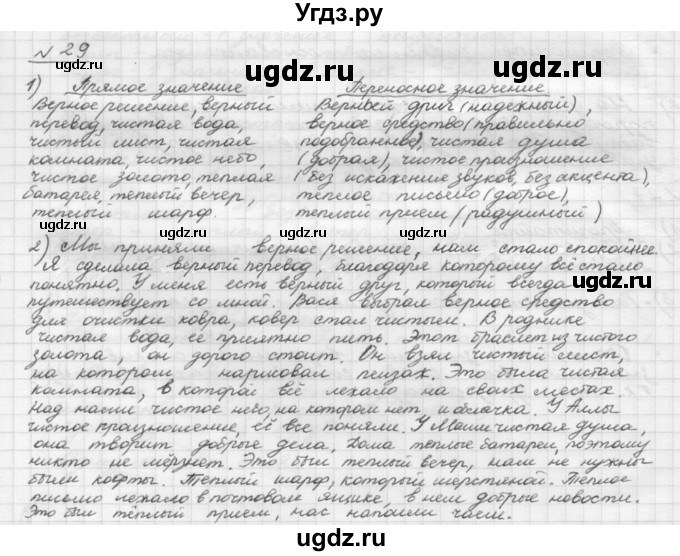 Угдз.ру
№ 29
1) Прямое значение Переносное значение
Верное решение, верный Верный друг (надежный),
перевод, чистая вода, верное средство (правильно
чистый лист, чистая подобранное), чистая душа
комната, чистое небо, (добрая), чистое произношение
чистое золото, теплая (без искажение звуков, без акцента),
батарея, теплый вечер, теплое письмо (доброе),
теплый шарф. теплый прием (радушный)
2) Мы приняли верное решение, нам стало спокойнее.
Я сделала верный перевод, благодаря которому всё стало
понятно. У меня есть верный друг, который всегда
путешествует со мной. Вася выбрал верное средство
для очистки ковра, ковер стал чистым. В роднике
чистая вода, её приятно пить. Этот браслет из чистого
золота, он дорого стоит. Он взял чистый лист,
на котором нарисовал пейзаж. Это была чистая
комната, в которой всё лежало на своих местах.
Над нами чистое небо, на котором нет и облачка. У Аллы
чистое произношение, её все поняли. У Маши чистая душа,
она творит добрые дела. Дома теплые батареи, поэтому
никто не мёрзнет. Это был теплый вечер, нам не нужны
были кофты. Теплый шарф, который шерстяной. Теплое
письмо лежало в почтовом ящике, в нем добрые новости.
Это был тёплый прием, нас напоили чаем.
угдз.ру угдз.ру угдз.ру
угдз.ру угдз.ру
угдз.ру угдз.ру угдз.ру
угдз.ру угдз.ру
угдз.ру угдз.ру угдз.ру
угдз.ру угдз.ру
угдз.ру угдз.ру угдз.ру